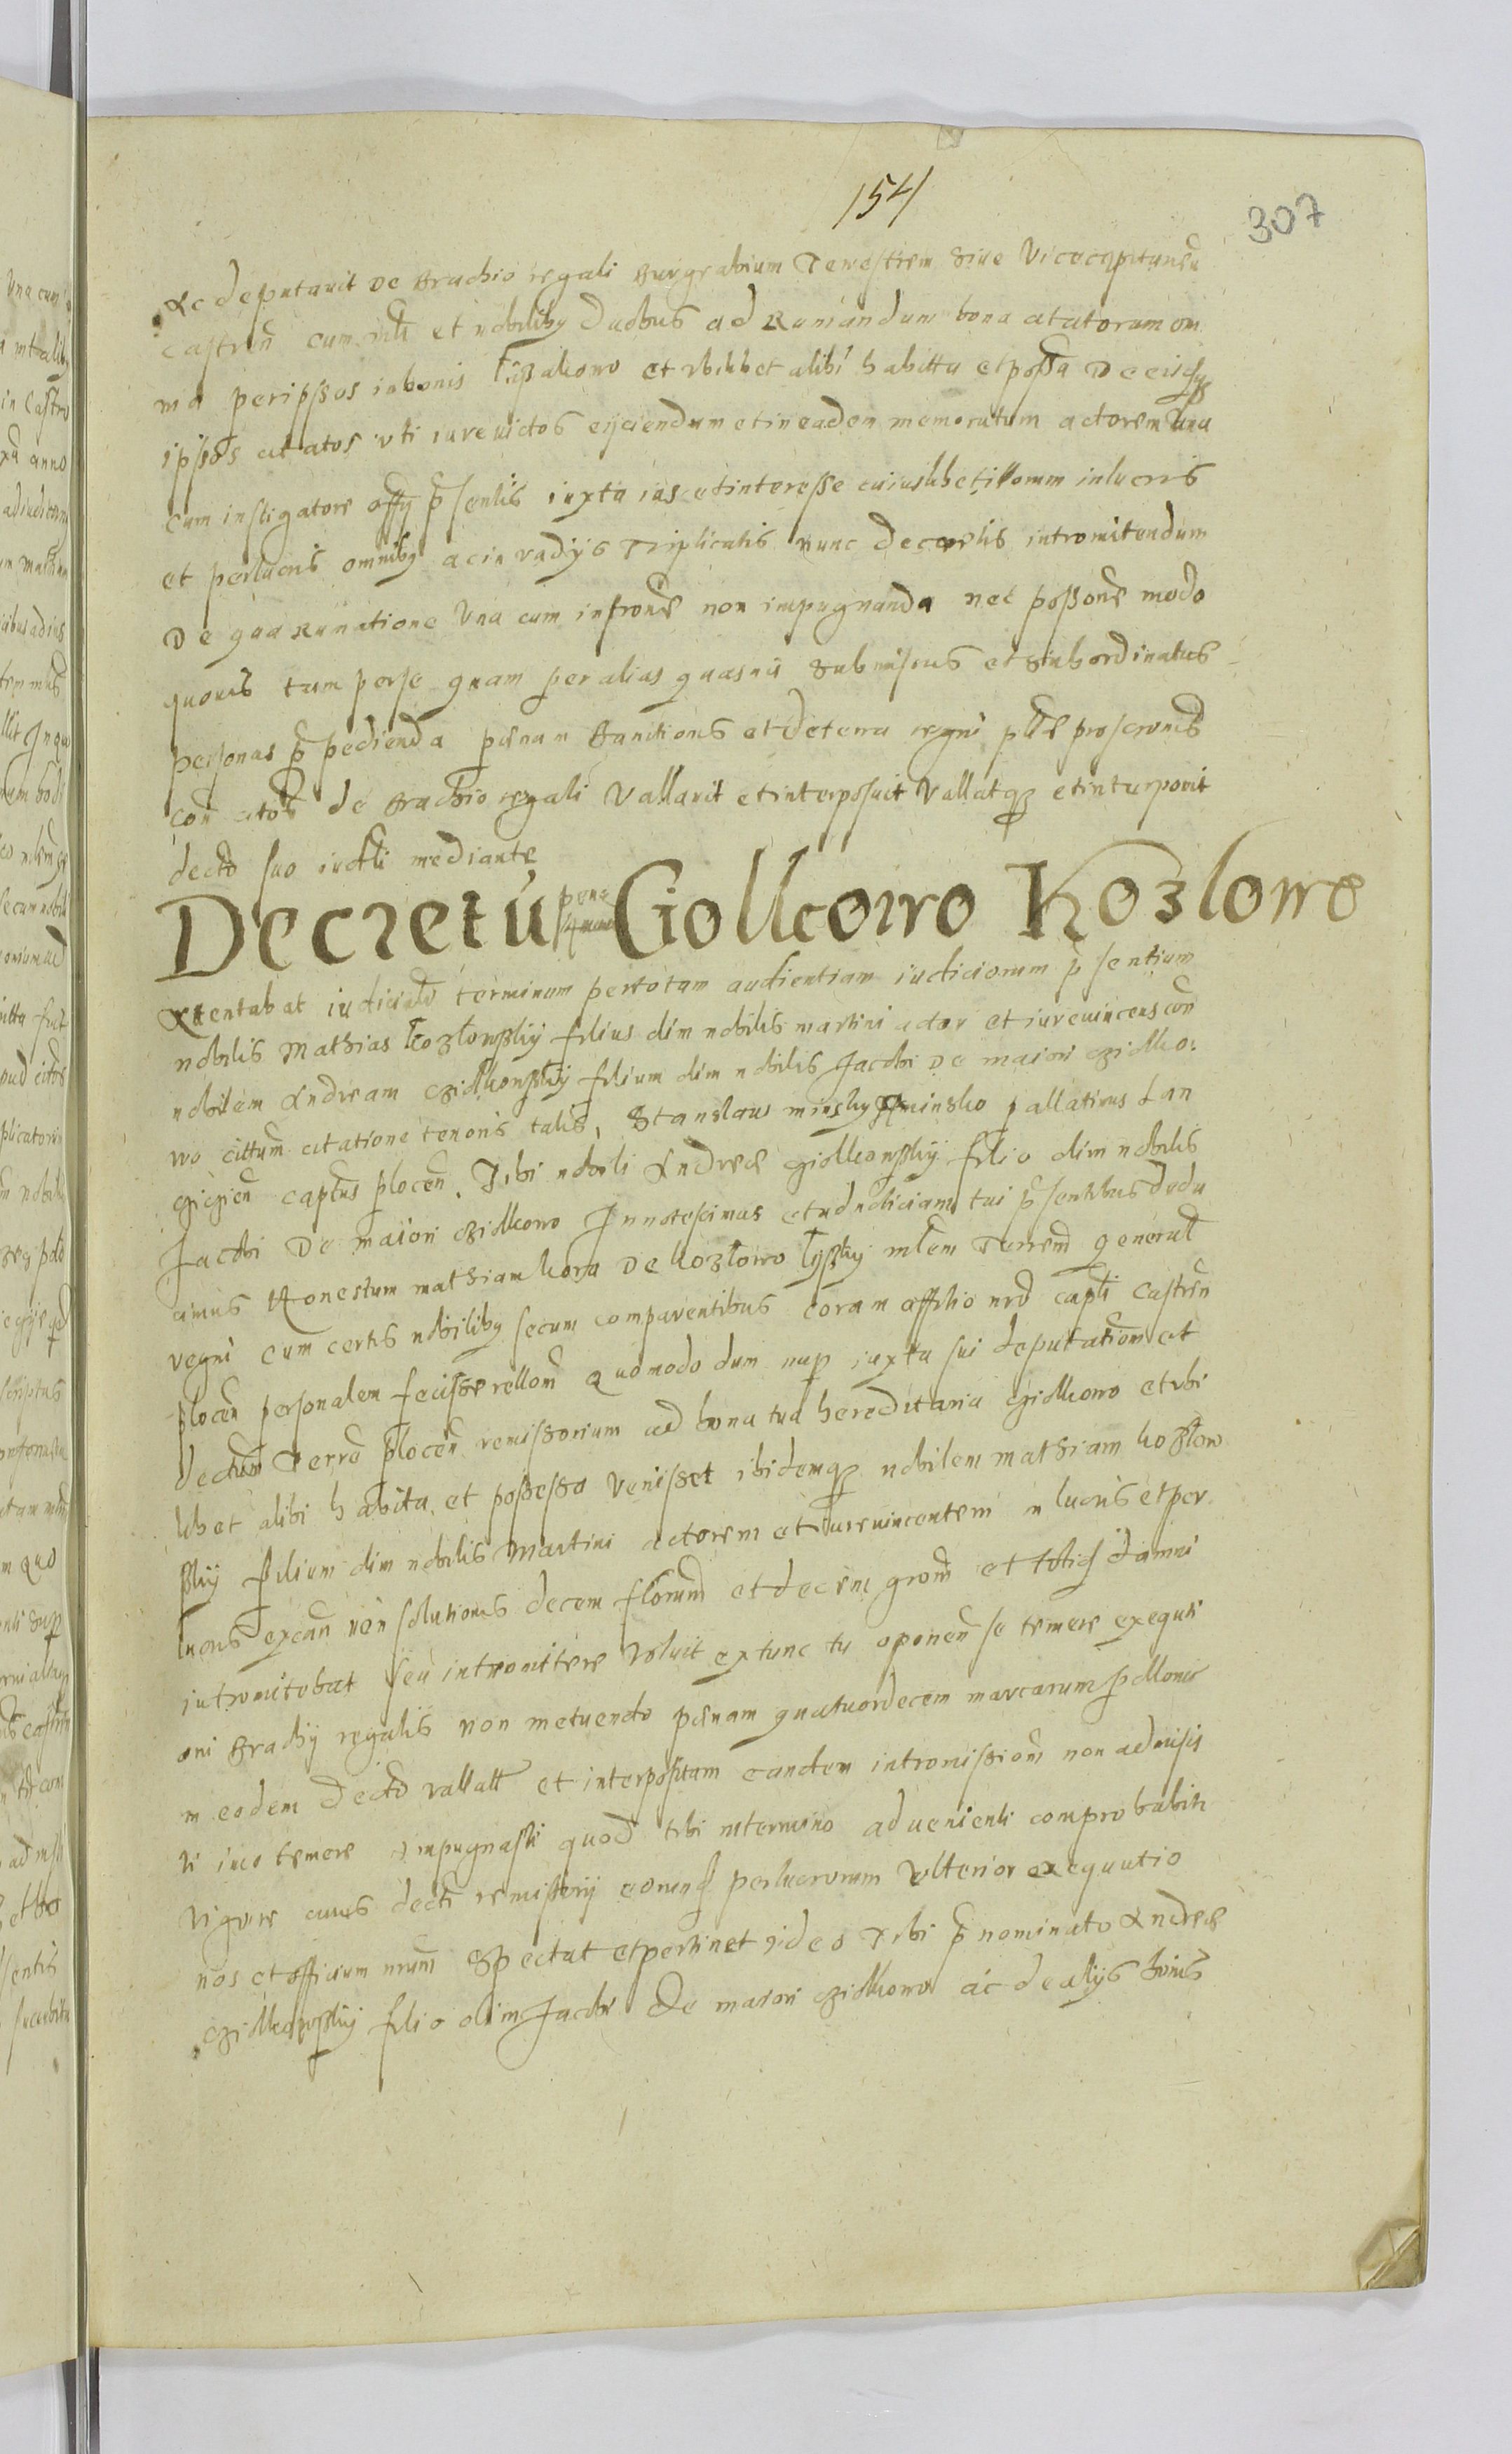 154
307
Ac deputavit de Brachio regali Burgrabium Terrestrem sive Vicecapitaneū
castren̄ cum mli et nobiliby duobus ad Rumandum bona citatorum om
nia per ipssos in bonis et vbilibet alibi habitta et possa De eisqȝ
ipssos citatos vti iurevictos eijciendum et in eadem memoratum actorem vna
cum instigatore offij p̄sentis iuxta ius et interesse cuiuslibet illorum in lucris
et perlucris omniby ac in vadijs Triplicatis nunc decretis intromitendum
De qua Rumatione Vna cum intrōne non impugnanda nec possōne modo
quovis tam per se quam per alias quasvis submissas et subordinatas
personas p̄pedienda pænam Banitionis et de terra regni pllr̄ proscrōnis
con̄ citōs de Brachio regali Vallavit et interposuit Vallatqȝ et interponit
decto suo iudtli mediante
Decretū pene Ciolkowo Kozlowo
Attentabat iudicialr̄ terminum per totam audientiam iudiciorum p̄sentium
nobilis Mathias Kozlowsky filius olim nobilis martini actor et iurevincens con̄
nobilem Andream cziolkowsky filium olim nobilis Jacobi De maiori cziolko:
wo cittum citatione tenoris talis, Stanislaus minsky de minsko pallatinus Lan
cicien̄ captus plocen̄. Tibi nobili Andreæ cziolkowsky filio olim nobilis
Jacobi De maiori cziolkowo Innotescimus et ad noticiam tui p̄sentibus dedu
cimus Honestum mathiam De kozlowo mlem Terrem general
regni cum certis nobiliby secum comparentibus coram officio nro capli castren̄
plocen̄ personalem fecisse rellom̄ quomodo dum nup̄ iuxta sui deputationem et
dectum Terre plocen̄ remissorium ad bona tua hereditaria cziolkowo et vbi
libet alibi habita et possessa venisset ibidemqȝ nobilem mathiam kozlow
sky filium olim nobilis Martini actorem et iurevincentem in lucris et per
lucris ex can̄ non solutionis decem florum̄ et decem grom̄ et totidē damni
intromitebat seu intromittere voluit extunc tu oponen̄ se temere exequti
oni Brachij regalis non metuendo pænam quatuordecem marcarum pollonic̄
in eodem decto vallatt et interpositam eandem intromissionem non admisis
ti imo temere impugnasti quod tibi in termino advenienti comprobabit
Vigore cuius decti remissorij eorundē perlucrorum vlterior exequutio
nos et officium nrum̄ Spectat et pertinet ideo Tibi p̄nominato Andreæ
cziolkowsky filio olim Jacobi De maiori cziolkowo ac de alijs bonis